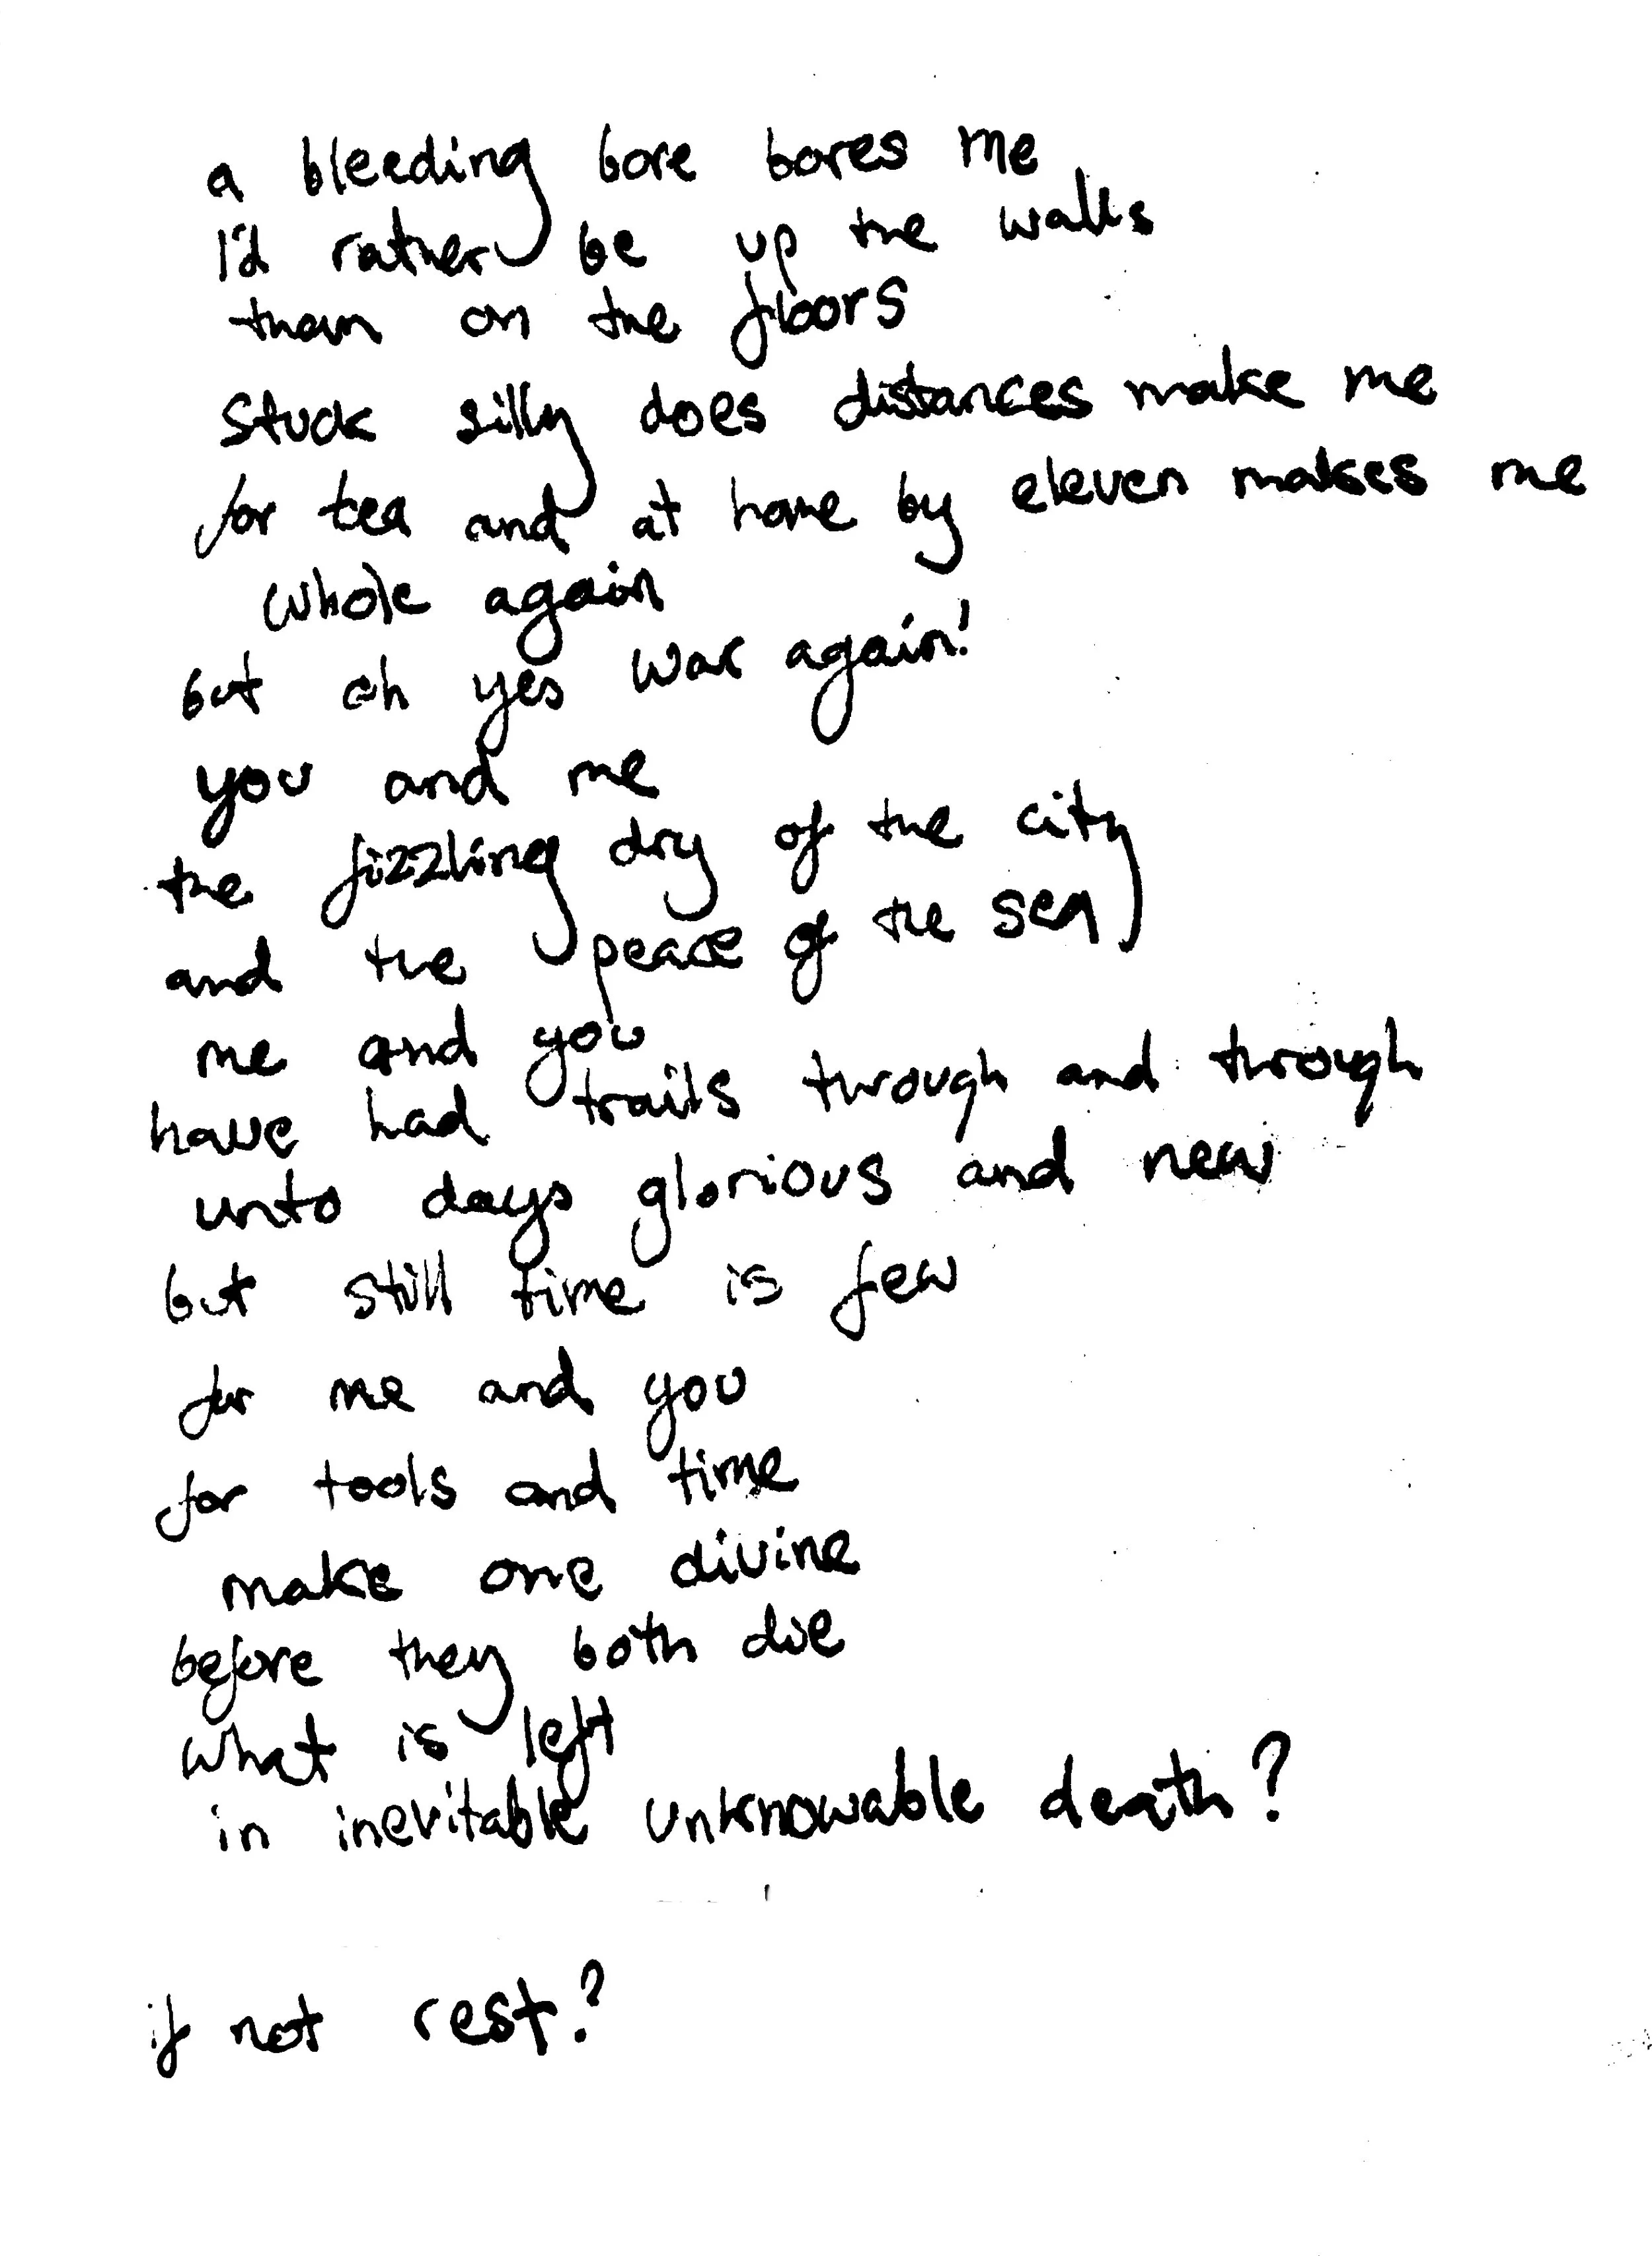 a bleeding bore bores me
I'd rather be up the walls
than on the floors
stuck silly does distances make me
for tea and at home by eleven makes me
whole again
but oh yes war again!
you and me
the fizzling dry of the city
and the peace of the sea
me and you
have had trails through and through
unto days glorious and new
but still time is few
for me and you
for tools and time
make one divine
before they both die
what is left
in inevitable unknowable death?
if not rest?